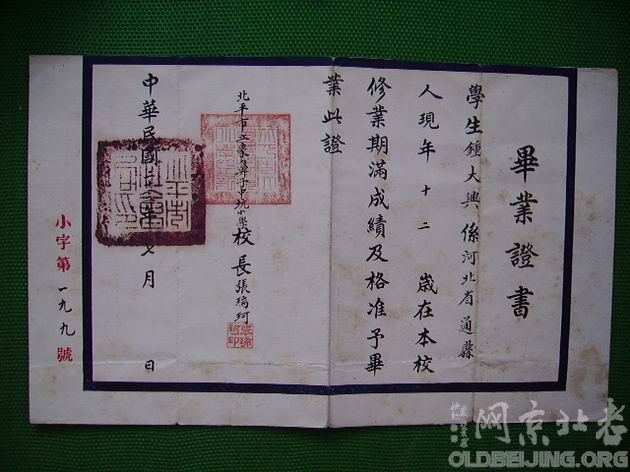 畢業證書
學生鍾大興係河北省通縣
人現年十二歲在本校
修業期滿成績及格准予畢
業此證
北平市立象鼻子中坑小學校長張瑞珂
張瑞珂印
中華民國年七月 日
小字第一九九號
网京北老
OLDBEIJING.ORG